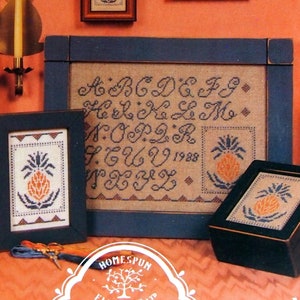 A B C D E F G
H I J K L M
N O P Q R
S T U V 1988
W X Y Z
HOMESPUN